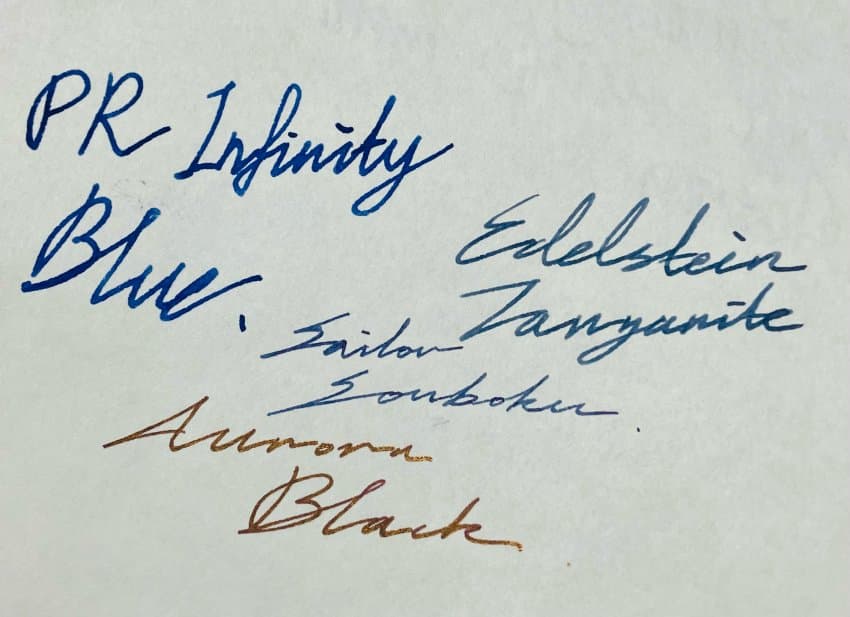 PR Infinity
Blue.
Edelstein
Tanzanite
Sailor
Souboku.
Aurora
Black